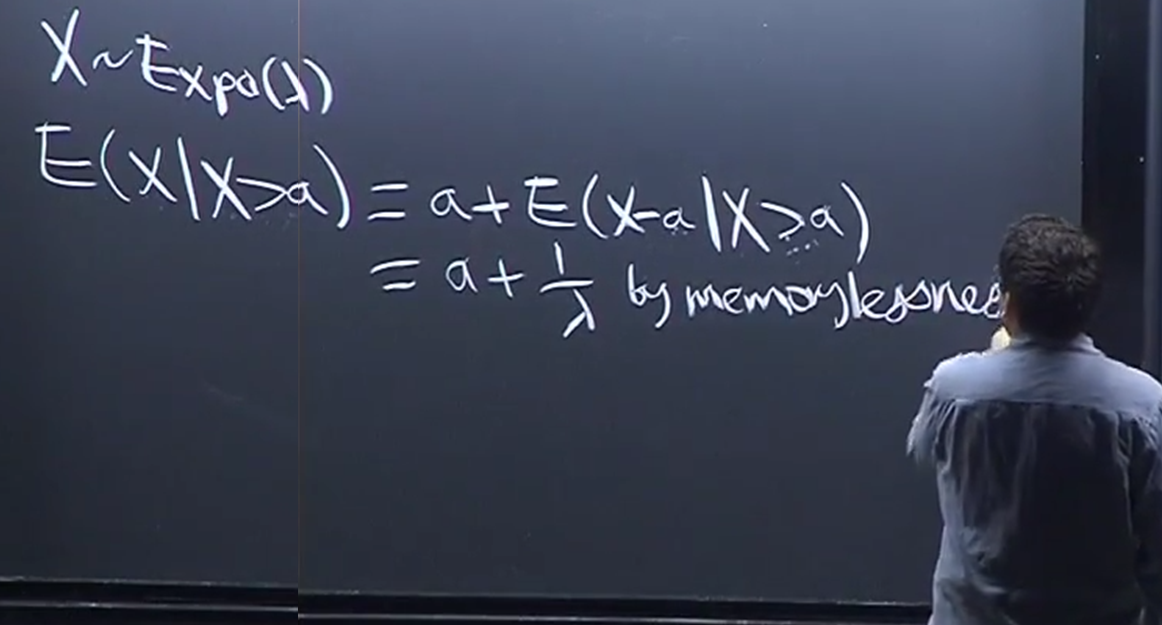 X ~ Expo(λ)
E(X|X>a) = a + E(X-a|X>a)
= a + 1/λ by memorylessness